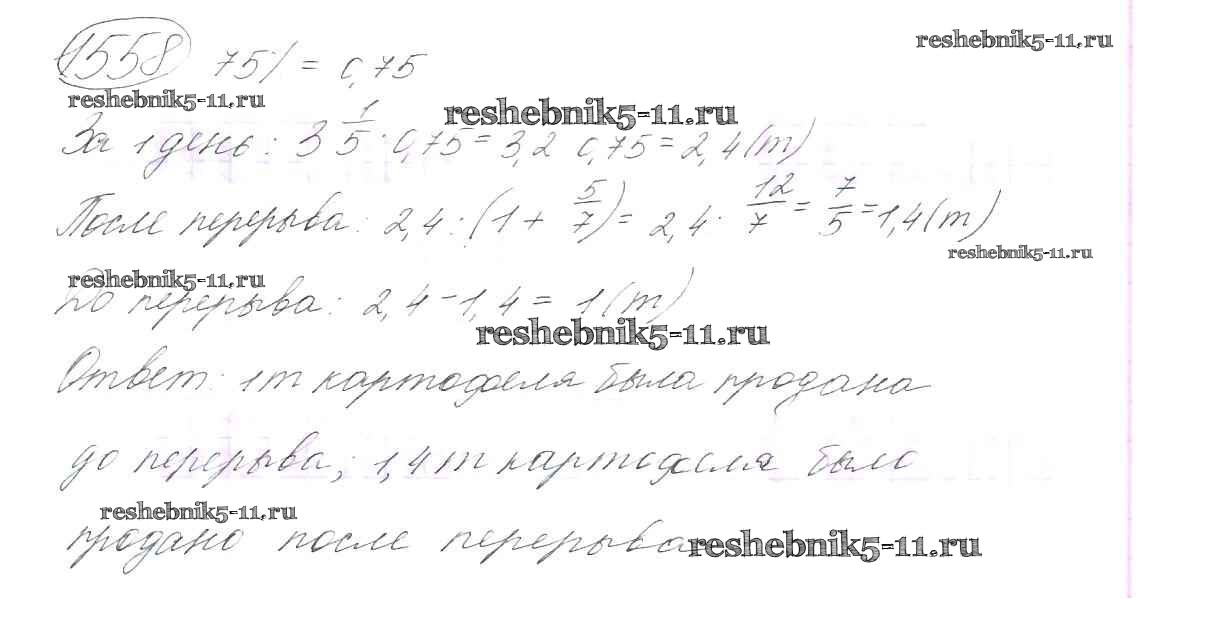 reshebnik5-11.ru
1558 75% = 0,75
reshebnik5-11.ru
reshebnik5-11.ru
За 1 день: 3 1/5 · 0,75 = 3,2 0,75 = 2,4 (т)
После перерыва: 2,4 : (1 + 5/7) = 2,4 · 12/7 = 7/5 = 1,4 (т)
reshebnik5-11.ru
reshebnik5-11.ru
До перерыва: 2,4 - 1,4 = 1 (т)
reshebnik5-11.ru
Ответ: 1 т картофеля была продана
до перерыва; 1,4 т картофеля было
reshebnik5-11.ru
продано после перерыва
reshebnik5-11.ru